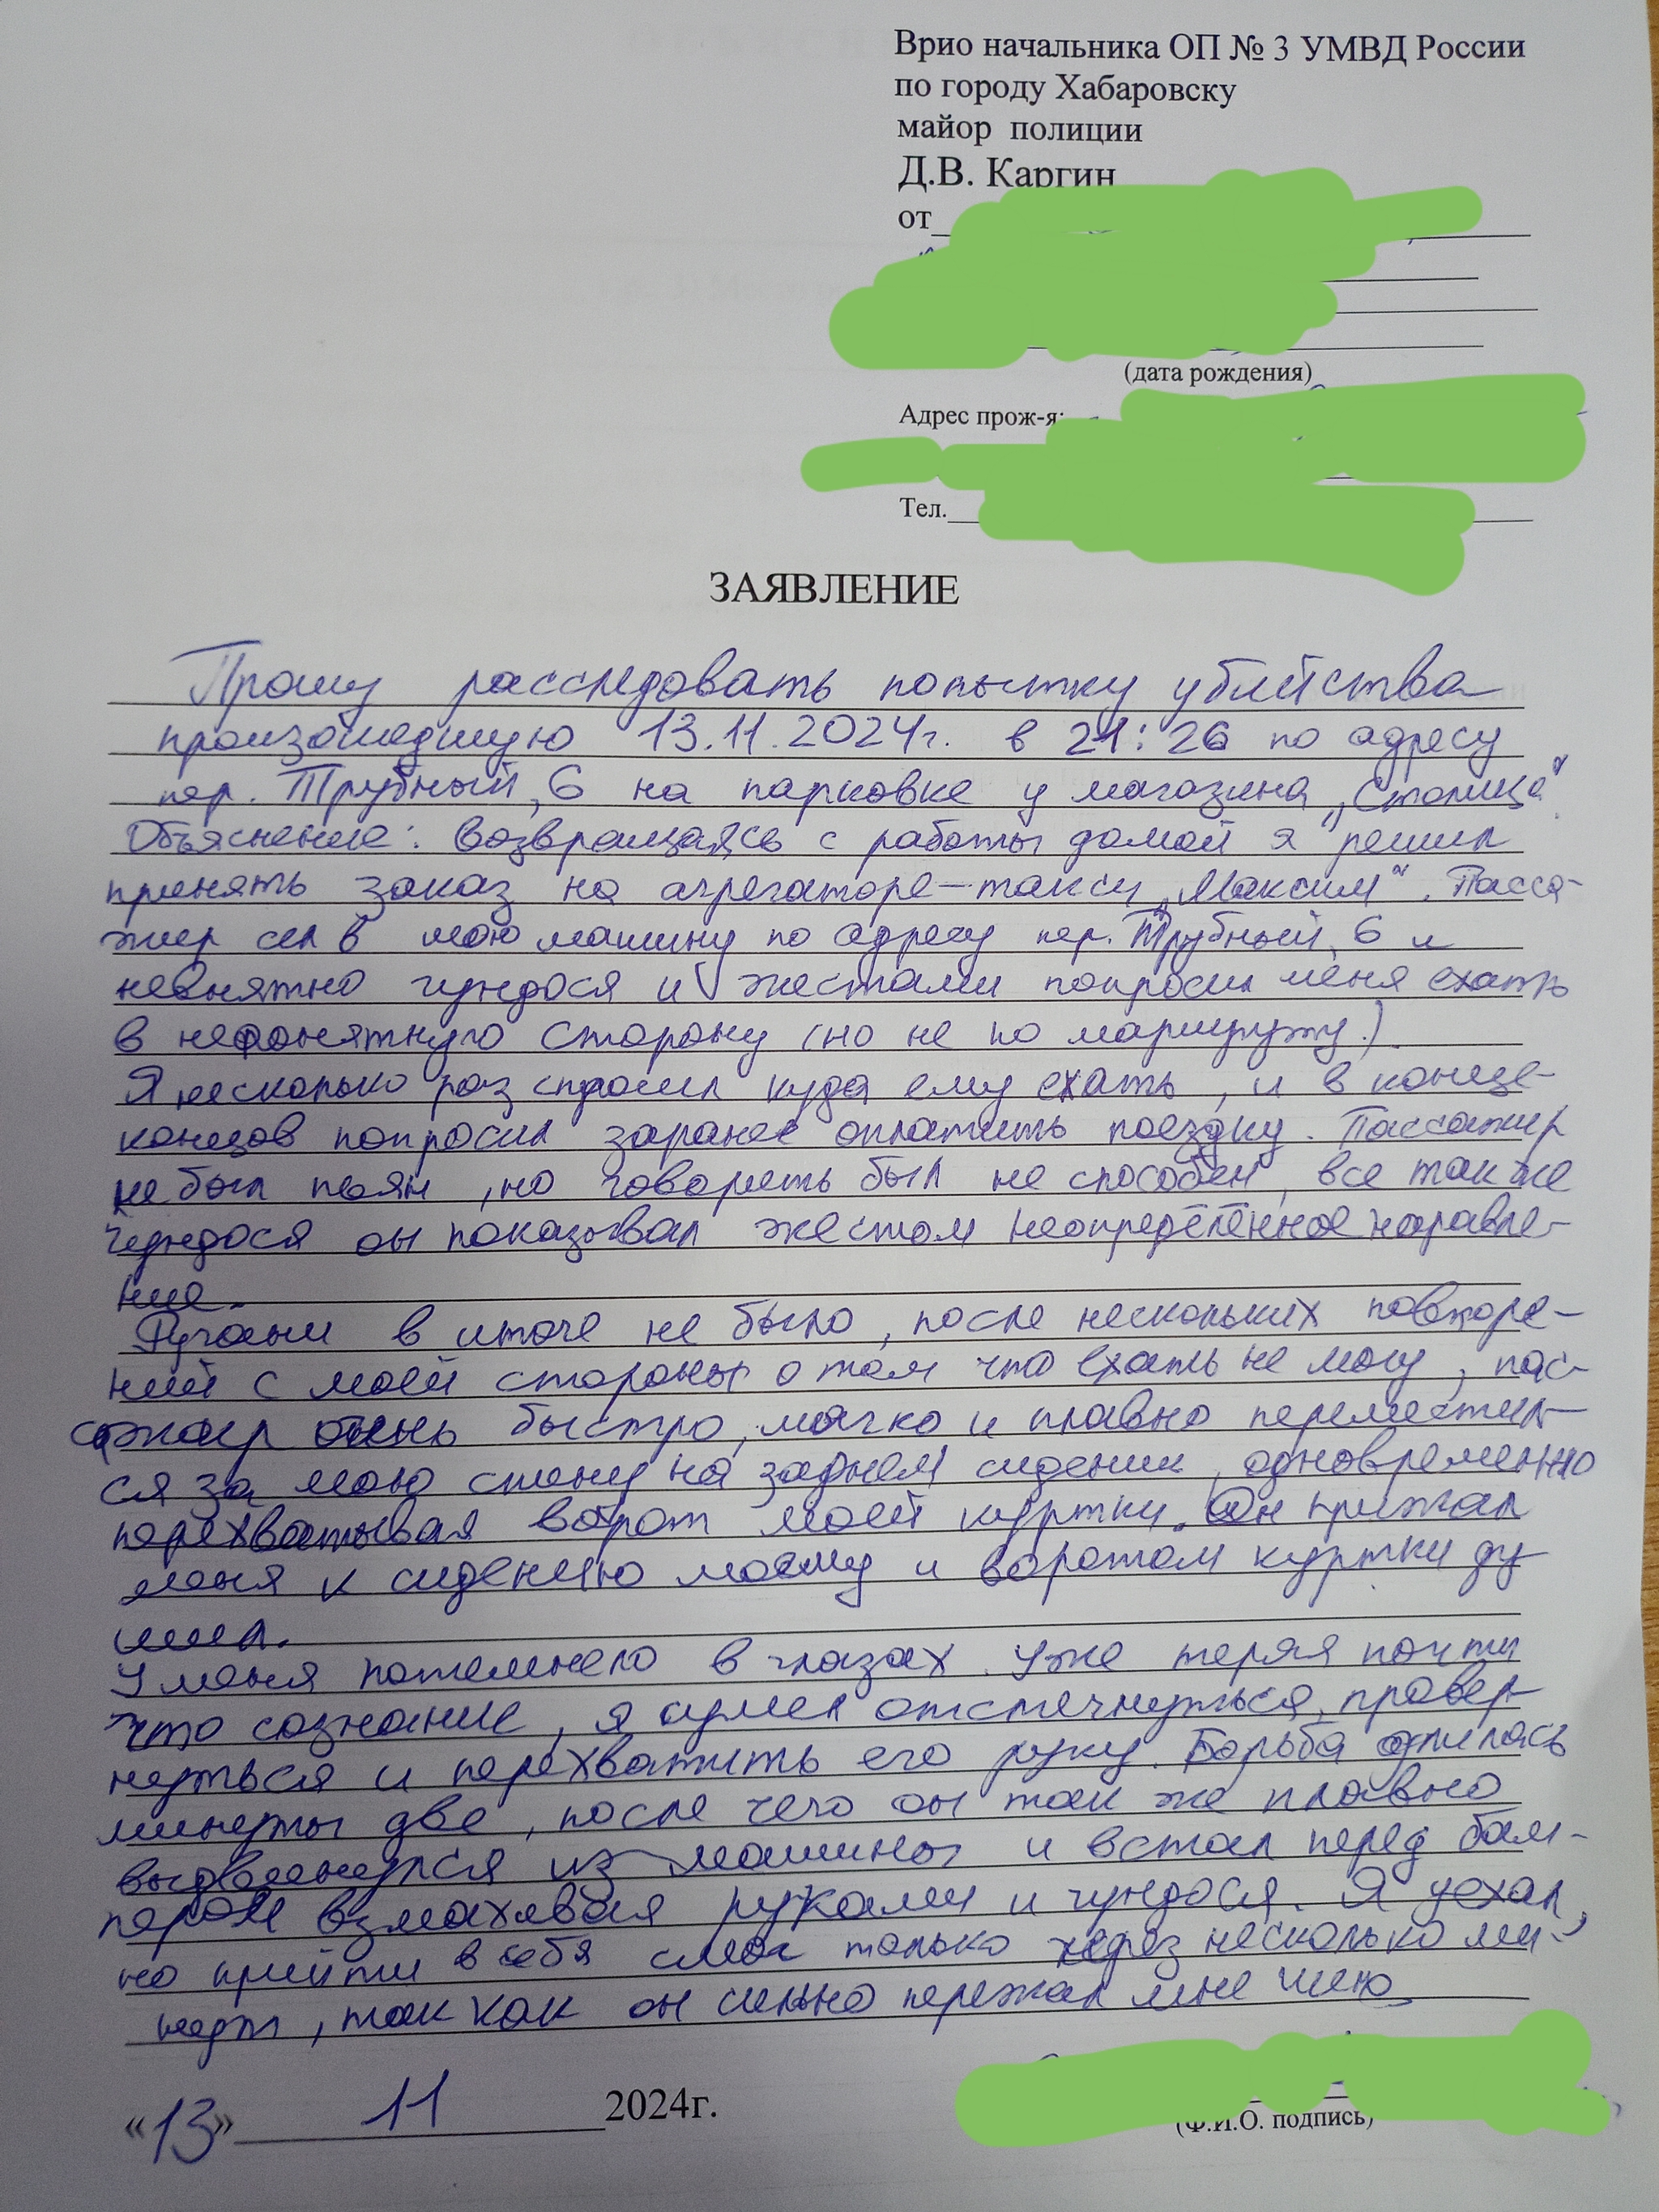 Врио начальника ОП № 3 УМВД России
по городу Хабаровску
майор полиции
Д.В. Каргин
от
(дата рождения)
Адрес прож-я:
Тел.
ЗАЯВЛЕНИЕ
Прошу расследовать попытку убийства
произошедшую 13.11.2024г. в 21:26 по адресу
пер. Трубный, 6 на парковке у магазина „Столица“
Объяснение: Возвращаясь с работы домой я решил
принять заказ на агрегаторе-такси „Максим“. Пасса-
жир сел в мою машину по адресу пер. Трубный, 6 и
невнятно гундося и жестами попросил меня ехать
в непонятную сторону (но не по маршруту).
Я несколько раз спросил куда ему ехать, и в конце-
концов попросил заранее оплатить поездку. Пассажир
не был пьян, но говорить был не способен, все так же
гундося он показывал жестом неопределённое направле-
ние.
Ругани в итоге не было, после нескольких повторе-
ний с моей стороны о том что ехать не могу, пас-
сажир очень быстро, мягко и плавно переместил-
ся за мою спину на заднем сидении, одновременно
перехватывая ворот моей куртки. Он прижал
меня к сидению моему и воротом куртки ду
шил.
У меня потемнело в глазах. Уже теряя почти
что сознание, я сумел отстегнуться, провер-
нуться и перехватить его руку. Борьба длилась
минуты две, после чего он так же плавно
выдвинулся из машины и встал перед бам-
пером взмахивая руками и гундося. Я уехал,
но прийти в себя смог только через несколько ми-
нут, так как он сильно пережал мне шею
«13» 11 2024г.
(Ф.И.О. подпись)